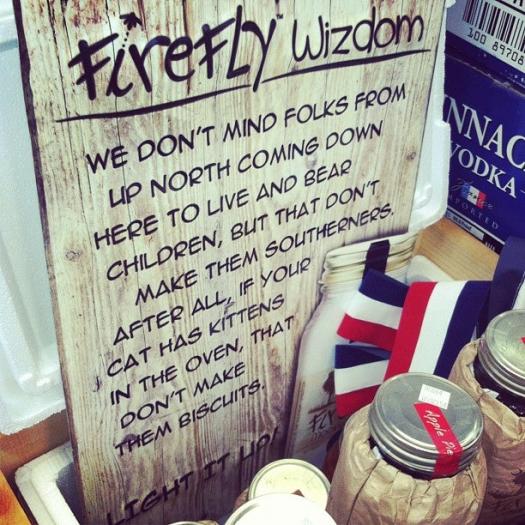 FireFly™ Wizdom
WE DON'T MIND FOLKS FROM
UP NORTH COMING DOWN
HERE TO LIVE AND BEAR
CHILDREN, BUT THAT DON'T
MAKE THEM SOUTHERNERS.
AFTER ALL, IF YOUR
CAT HAS KITTENS
IN THE OVEN, THAT
DON'T MAKE
THEM BISCUITS.
LIGHT IT UP
100 89708
NNAC
VODKA
IMPORTED
Apple Pie